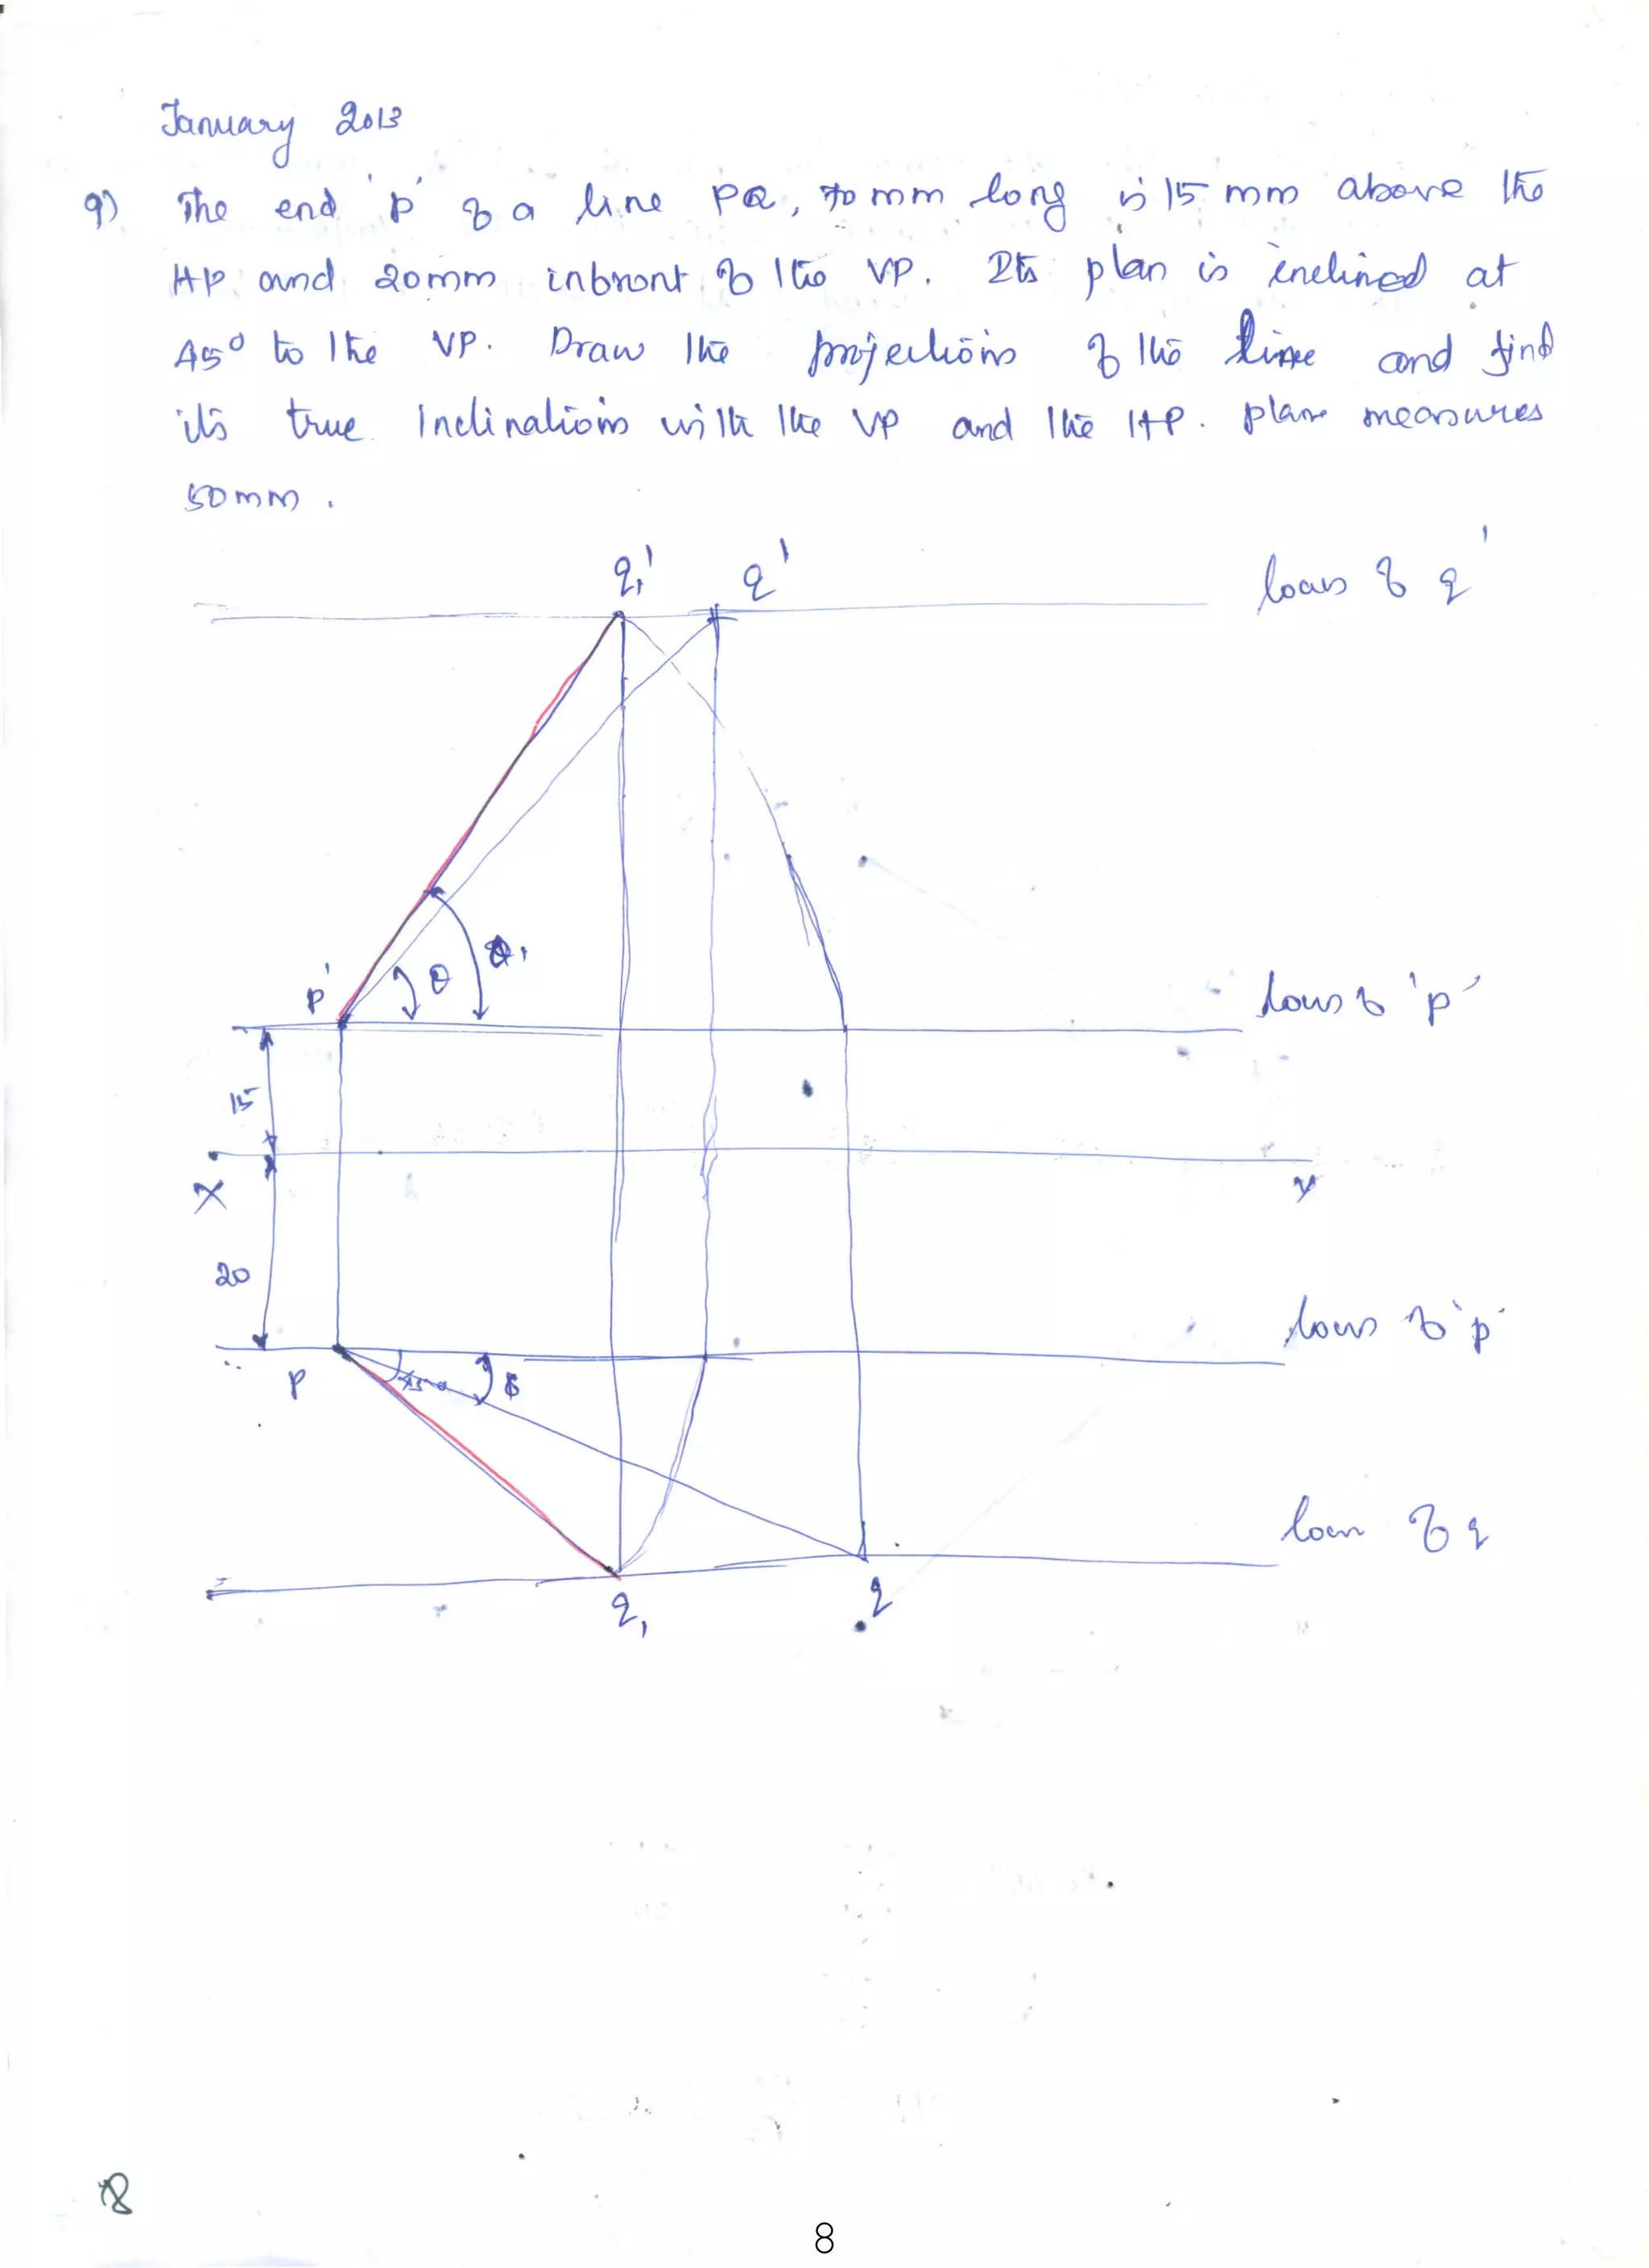 January 2013
9) The end 'p' of a line PQ, 70 mm long is 15 mm above the
HP and 20mm infront of the VP. Its plan is inclined at
45° to the VP. Draw the projections of the line and find
its true Inclinations with the VP and the HP. plan measures
50mm.
q₁' q'
locus of q'
p' θ
locus of 'p'
15
X Y
20
locus of 'p'
p 45°
locus of q
q₁ q
8
8